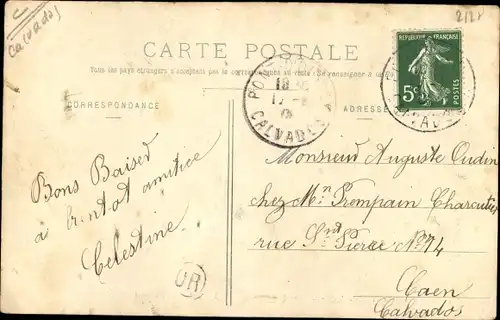 Ca(vados)
212
CARTE POSTALE
Tous les pays étrangers n'acceptent pas la correspondance au recto (Se renseigner à la
CORRESPONDANCE
ADRESSE
REPUBLIQUE FRANÇAISE
5c
POSTES
CALVADOS
Bons Baisers
à bientôt amitiée
Celestine
OR
Monsieur Auguste Oudin
chez Mn Prempain Charcutier
rue St Pierre No 74
Caen
Calvados